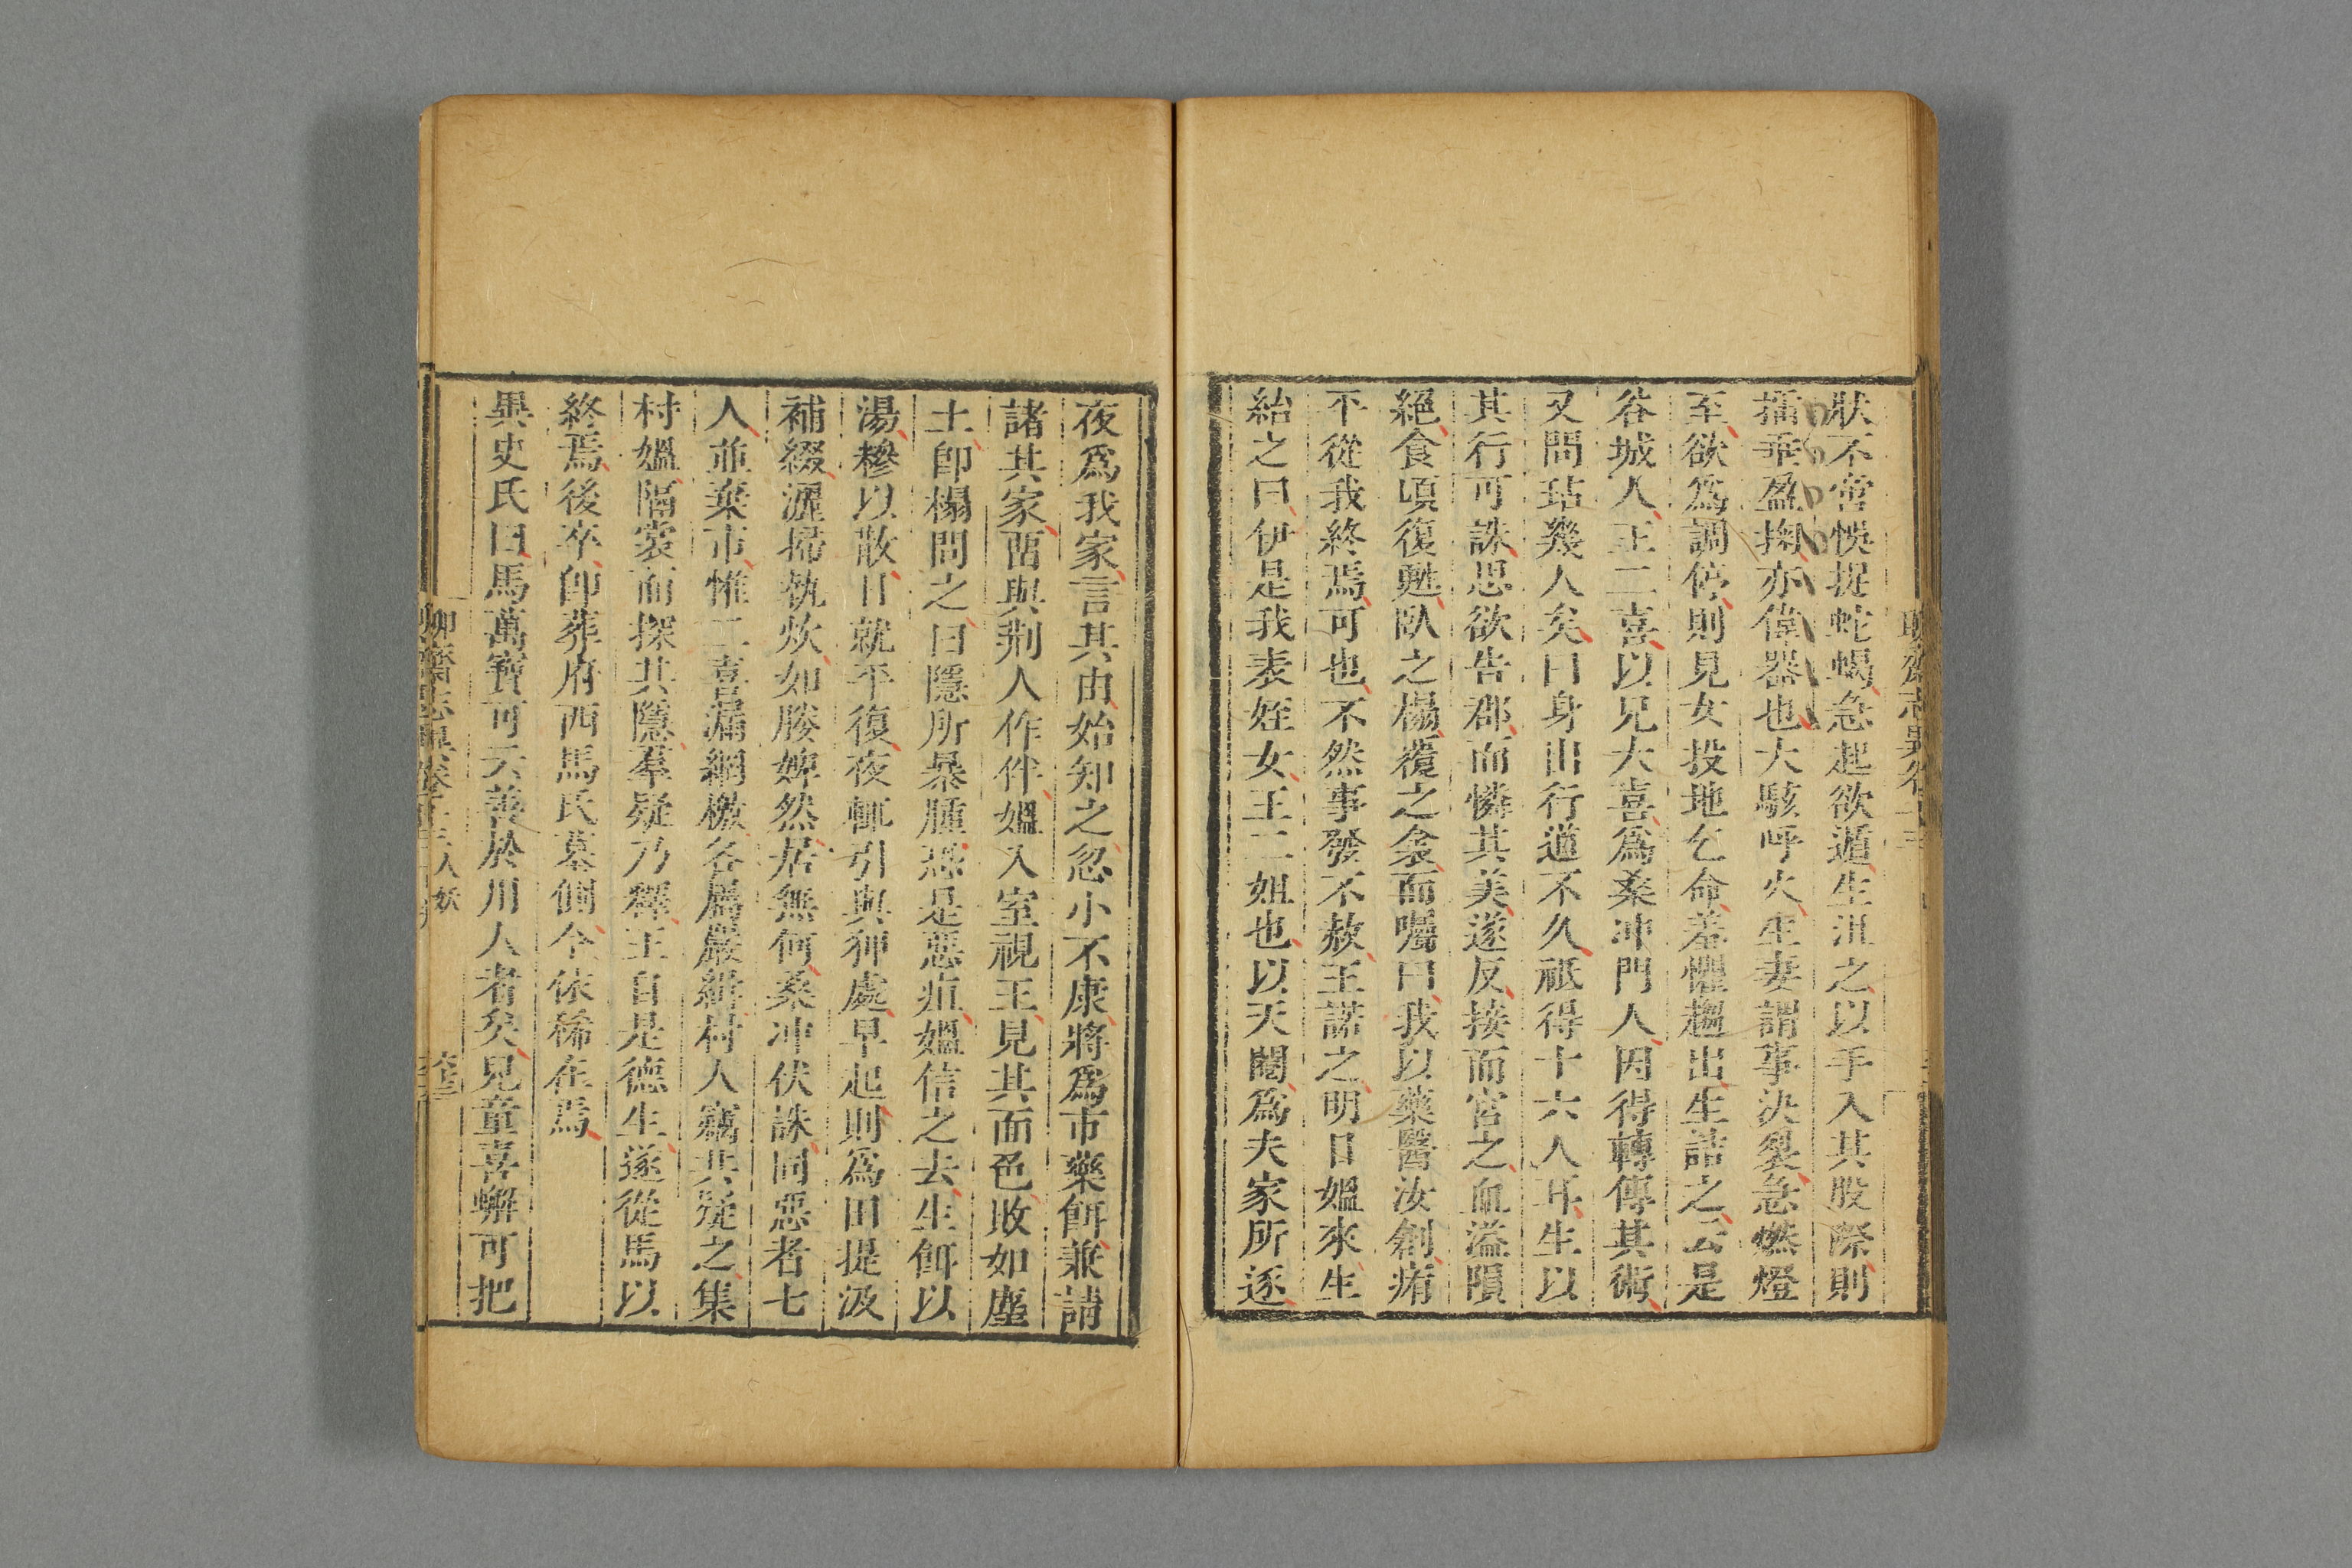 狀不啻悞捉蛇蝎急起欲遁生沮之以手入其股際則
擂垂盈掬亦偉器也大駭呼火生妻謂事決裂急燃燈
至欲爲調停則見女投地乞命羞懼趨出生詰之云是
谷城人王二喜以兄大喜爲桑冲門人因得轉傳其術
又問玷幾人矣曰身出行道不久祗得十六人耳生以
其行可誅思欲告郡而憐其美遂反接而宮之血溢隕
絕食頃復甦臥之榻覆之衾而囑曰我以藥醫汝創痏
平從我終焉可也不然事發不赦王諾之明日媼來生
紿之曰伊是我表姪女王二姐也以天閹爲夫家所逐
夜爲我家言其由始知之忽小不康將爲市藥餌兼請
諸其家㽞與荆人作伴媼入室視王見其面色敗如塵
土卽榻問之曰隱所暴腫恐是惡疽媼信之去生餌以
湯糝以散日就平復夜輒引與狎處早起則爲田提汲
補綴灑掃執炊如媵婢然居無何桑冲伏誅同惡者七
人並棄市惟二喜漏網檄各屬嚴緝村人竊共疑之集
村媼隔裳而探其隱羣疑乃釋王自是德生遂從馬以
終焉後卒卽葬府西馬氏墓側今依稀在焉
異史氏曰馬萬寶可云善於用人者矣兒童喜蠏可把
聊齋志異卷十三 人妖